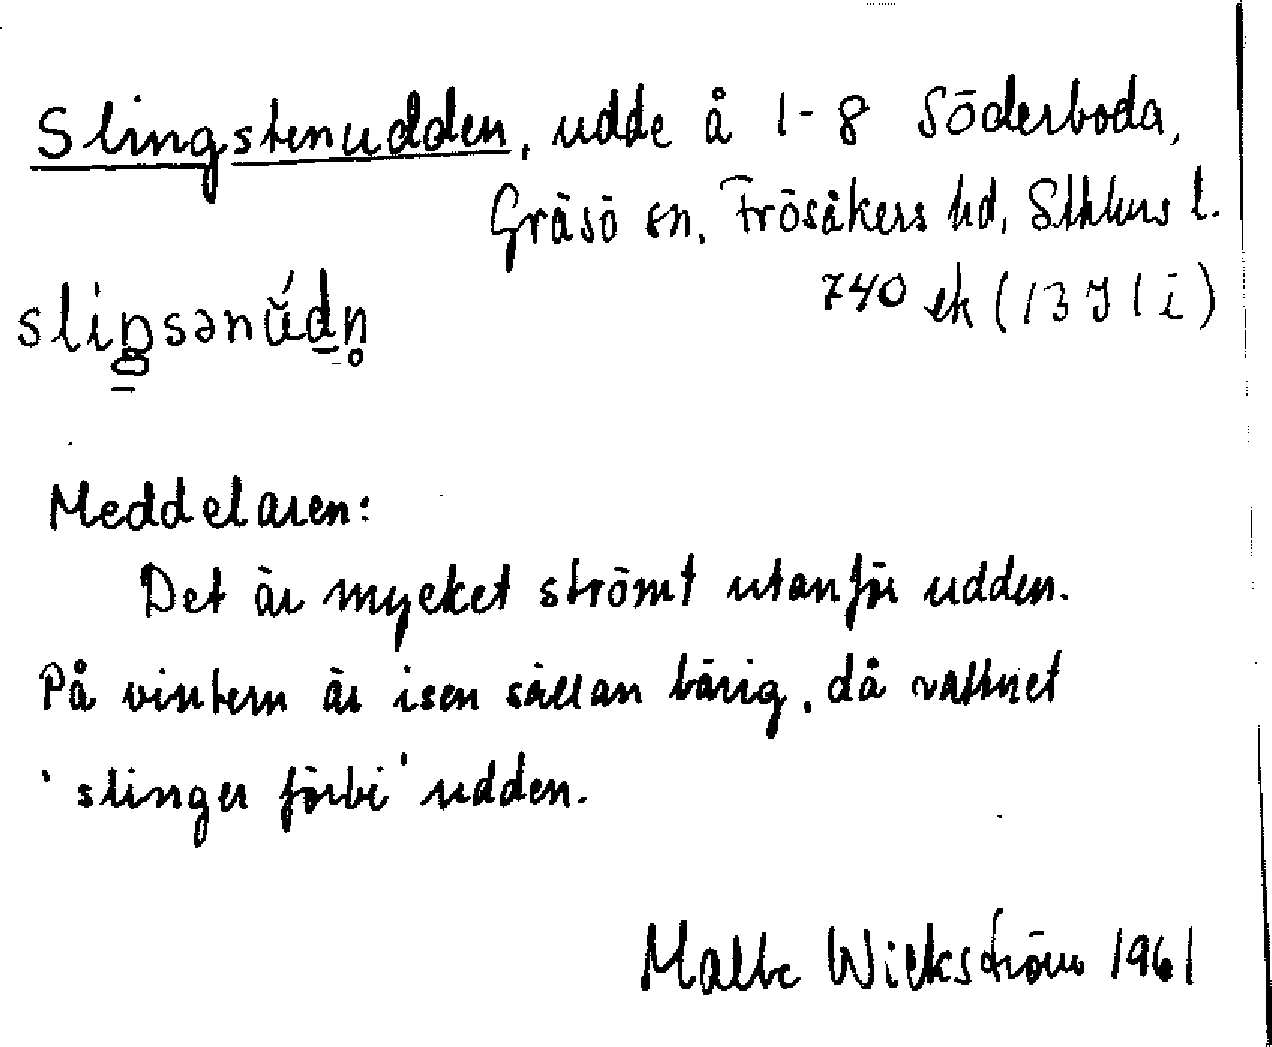 Slingstenudden, udde å 1-8 Söderboda,
Gräsö sn, Frösåkers hd, Sthlms l.
740 ek (13 I 1 i)
sliŋsənúdn̥
Meddelaren:
Det är mycket strömt utanför udden.
På vintern är isen sällan bärig, då vattnet
'slinger förbi' udden.
Malte Wickström 1961